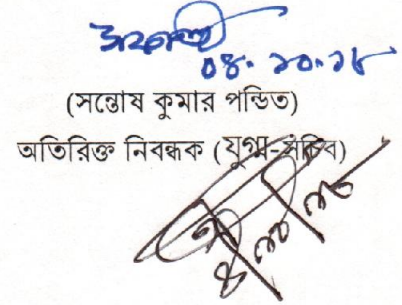 ০৪.১০.১৮
(সন্তোষ কুমার পন্ডিত)
অতিরিক্ত নিবন্ধক (যুগ্ম-সচিব)
৪/১০/১৮